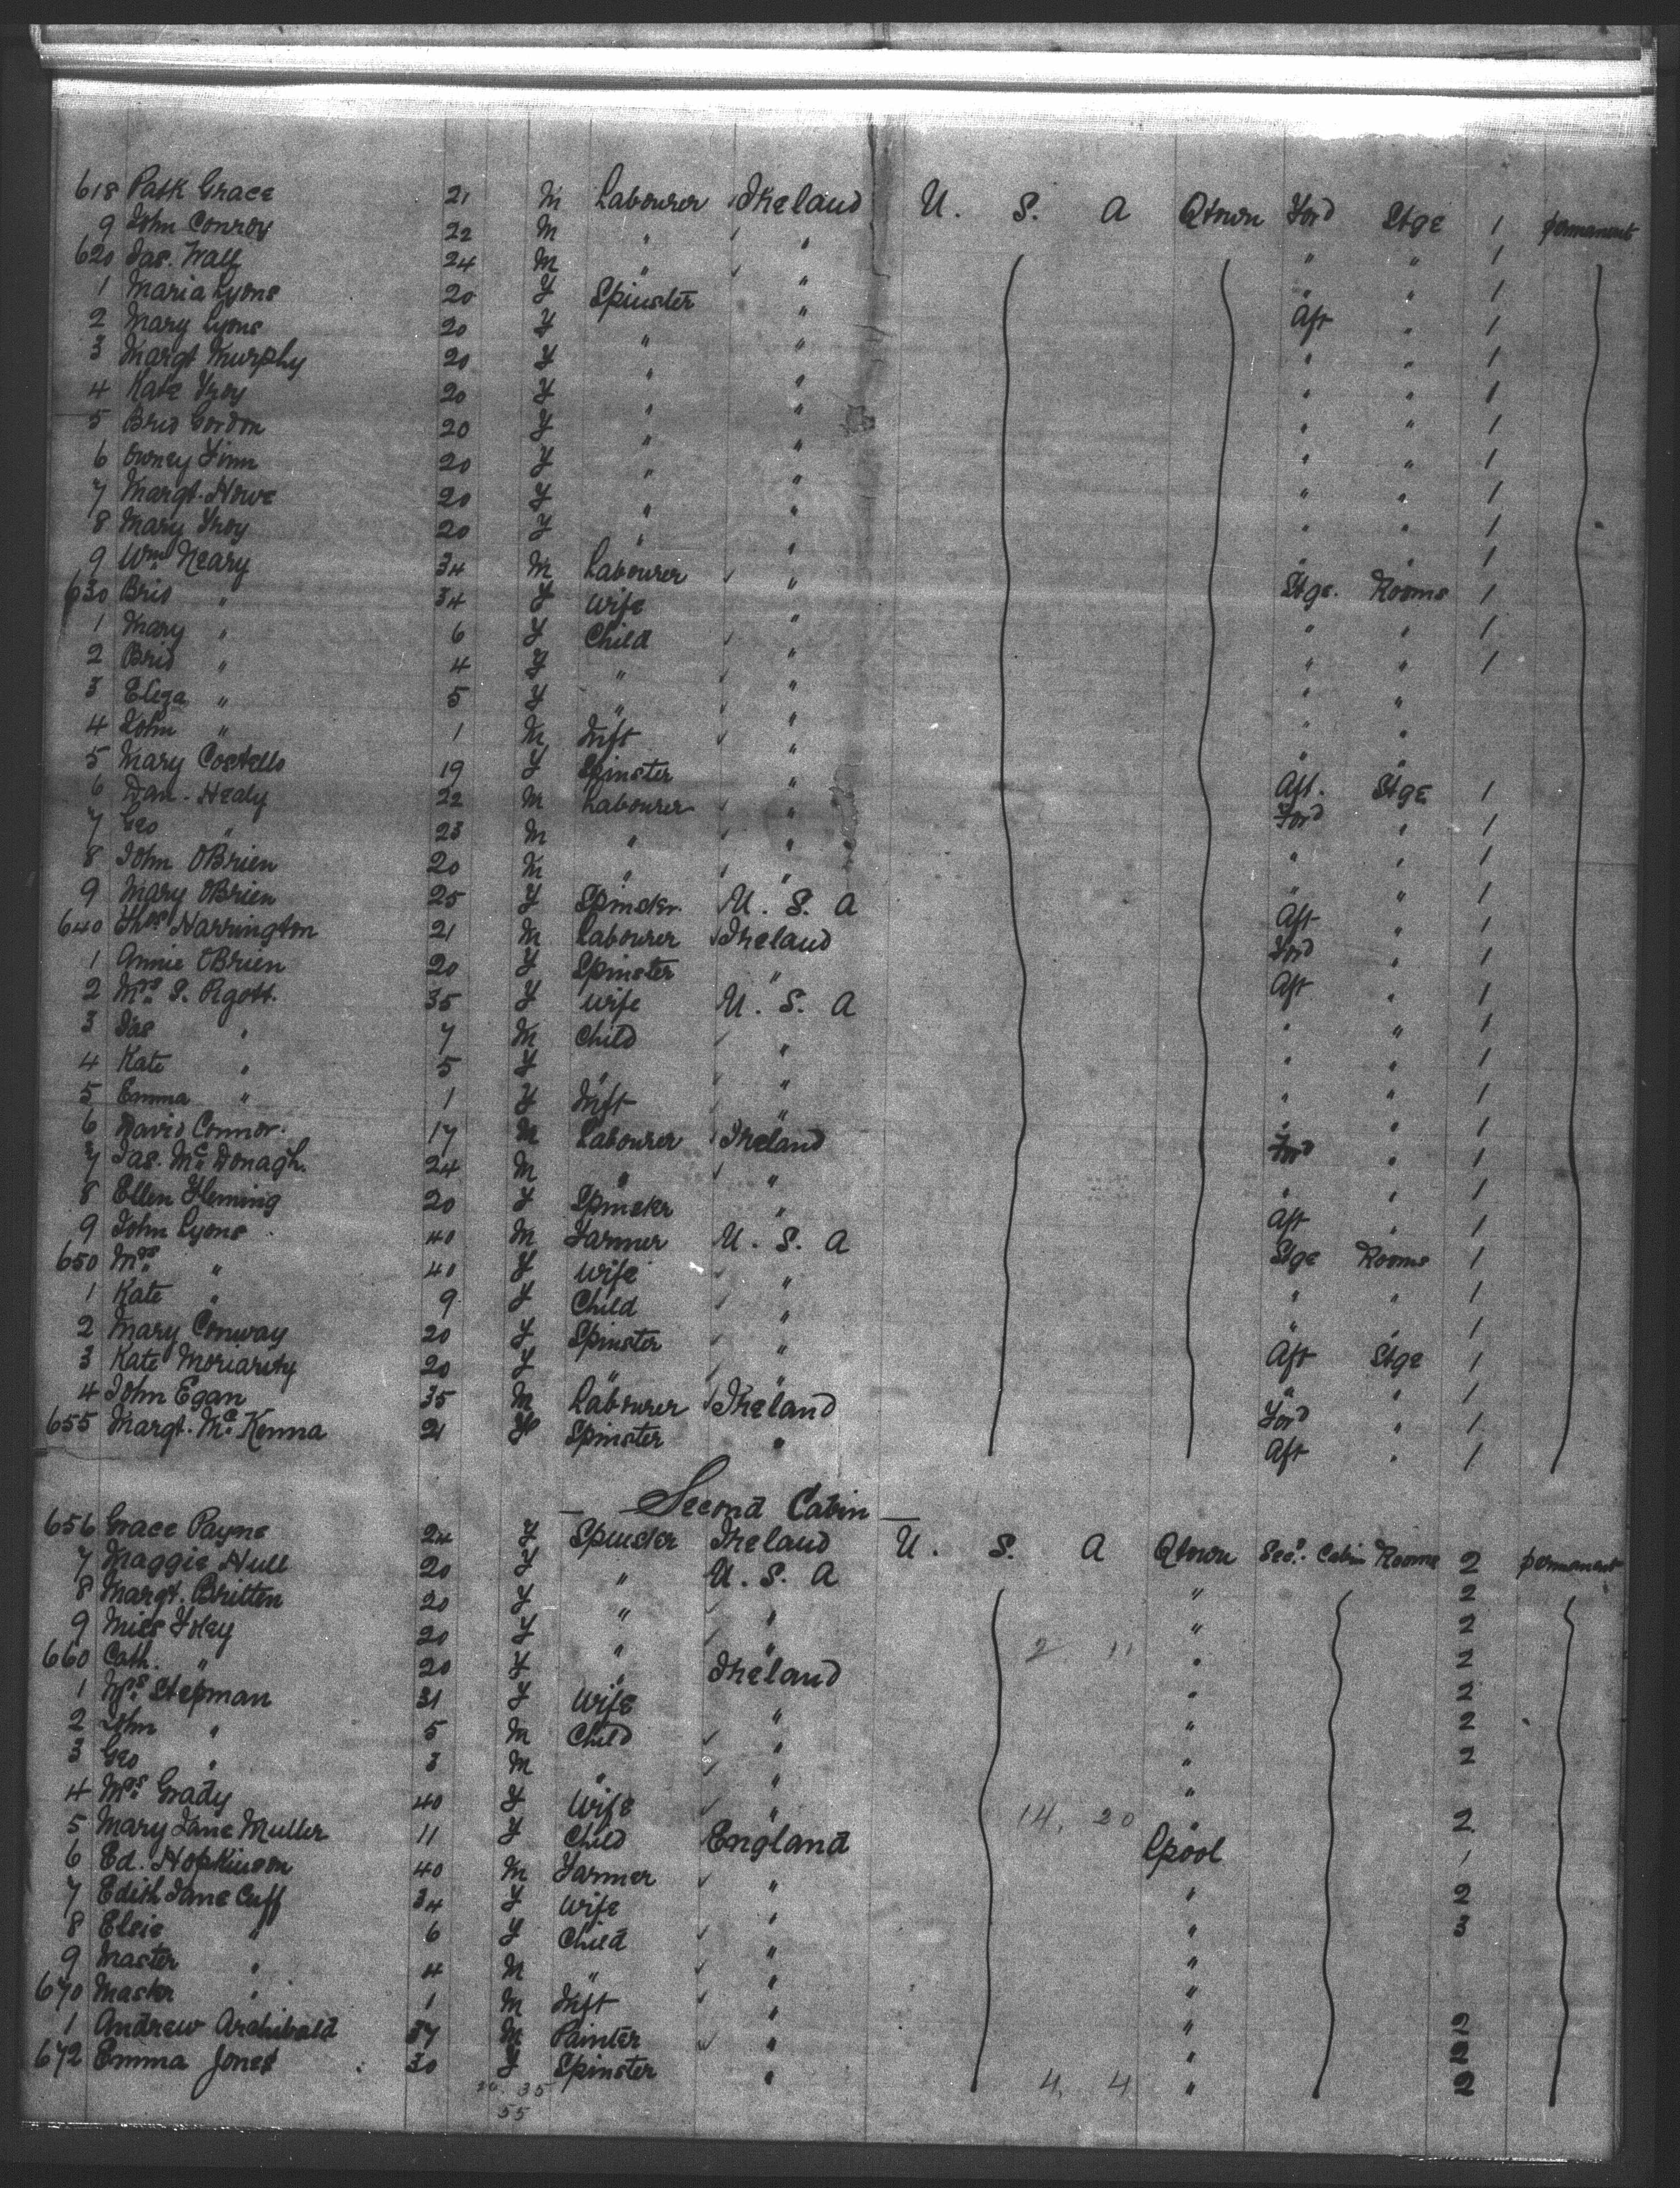 618 Patk Grace 21 M Labourer Ireland U. S. A Qtown Ford Stge 1 permanent
9 John Conroy 22 M " " " " 1
620 Jas. Wall 24 M " " " " 1
1 Maria Lyons 20 F Spinster " Aft " 1
2 Mary Lyons 20 F " " " " 1
3 Margt Murphy 20 F " " " " 1
4 Kate Troy 20 F " " " " 1
5 Brid Gordon 20 F " " " " 1
6 Owney Finn 20 F " " " " 1
7 Margt. Howe 20 F " " " " 1
8 Mary Troy 20 F " " " " 1
9 Wm Neary 34 M Labourer " Stge. Rooms 1
630 Brid " 34 F Wife " " " 1
1 Mary " 6 F Child " " " 1
2 Brid " 4 F " " " "
3 Eliza " 5 F " " " "
4 John " 1 M Inft " " "
5 Mary Costello 19 F Spinster " Aft. Stge 1
6 Dan. Healy 22 M Labourer " Ford " 1
7 Geo " 23 M " " " " 1
8 John OBrien 20 M " " " " 1
9 Mary OBrien 25 F Spinster. U. S. A Aft " 1
640 Thos Harrington 21 M Labourer Ireland Ford " 1
1 Annie OBrien 20 F Spinster " Aft " 1
2 Mrs S. Pigott. 35 F Wife U. S. A " " 1
3 Jas " 7 M Child " " " 1
4 Kate " 5 F " " " " 1
5 Emma " 1 F Inft " " " 1
6 David Connor. 17 M Labourer Ireland Ford " 1
7 Jas. McDonagh. 24 M " " " " 1
8 Ellen Fleming 20 F Spinster " Aft " 1
9 John Lyons 40 M Farmer U. S. A Stge Rooms 1
650 Mrs " 40 F Wife " " " 1
1 Kate " 9 F Child " " " 1
2 Mary Conway 20 F Spinster " Aft Stge 1
3 Kate Moriarity 20 F " " " " 1
4 John Egan 35 M Labourer Ireland Ford " 1
655 Margt. McKenna 21 F Spinster " Aft " 1
— Second Cabin —
656 Grace Payne 24 F Spinster Ireland U. S. A Qtown Secd. Cabin Rooms 2 permanent
7 Maggie Hull 20 F " U. S. A " 2
8 Margt. Britten 20 F " " " 2
9 Miss Foley 20 F " " 2 11 " 2
660 Cath. " 20 F " Ireland " 2
1 Mrs Stepman 31 F Wife " " 2
2 John " 5 M Child " " 2
3 Geo " 3 M " " "
4 Mrs Grady 40 F Wife " 14. 20 " 2
5 Mary Jane Muller 11 F Child England Lpool 1
6 Ed. Hopkinson 40 M Farmer " " 2
7 Edith Jane Cuff 34 F Wife " " 3
8 Elsie " 6 F Child " "
9 Master " 4 M " " "
670 Master " 1 M Inft " " 2
1 Andrew Archibald 37 M Painter " " 2
672 Emma Jones 30 F Spinster " 4. 4 " 2
35
55